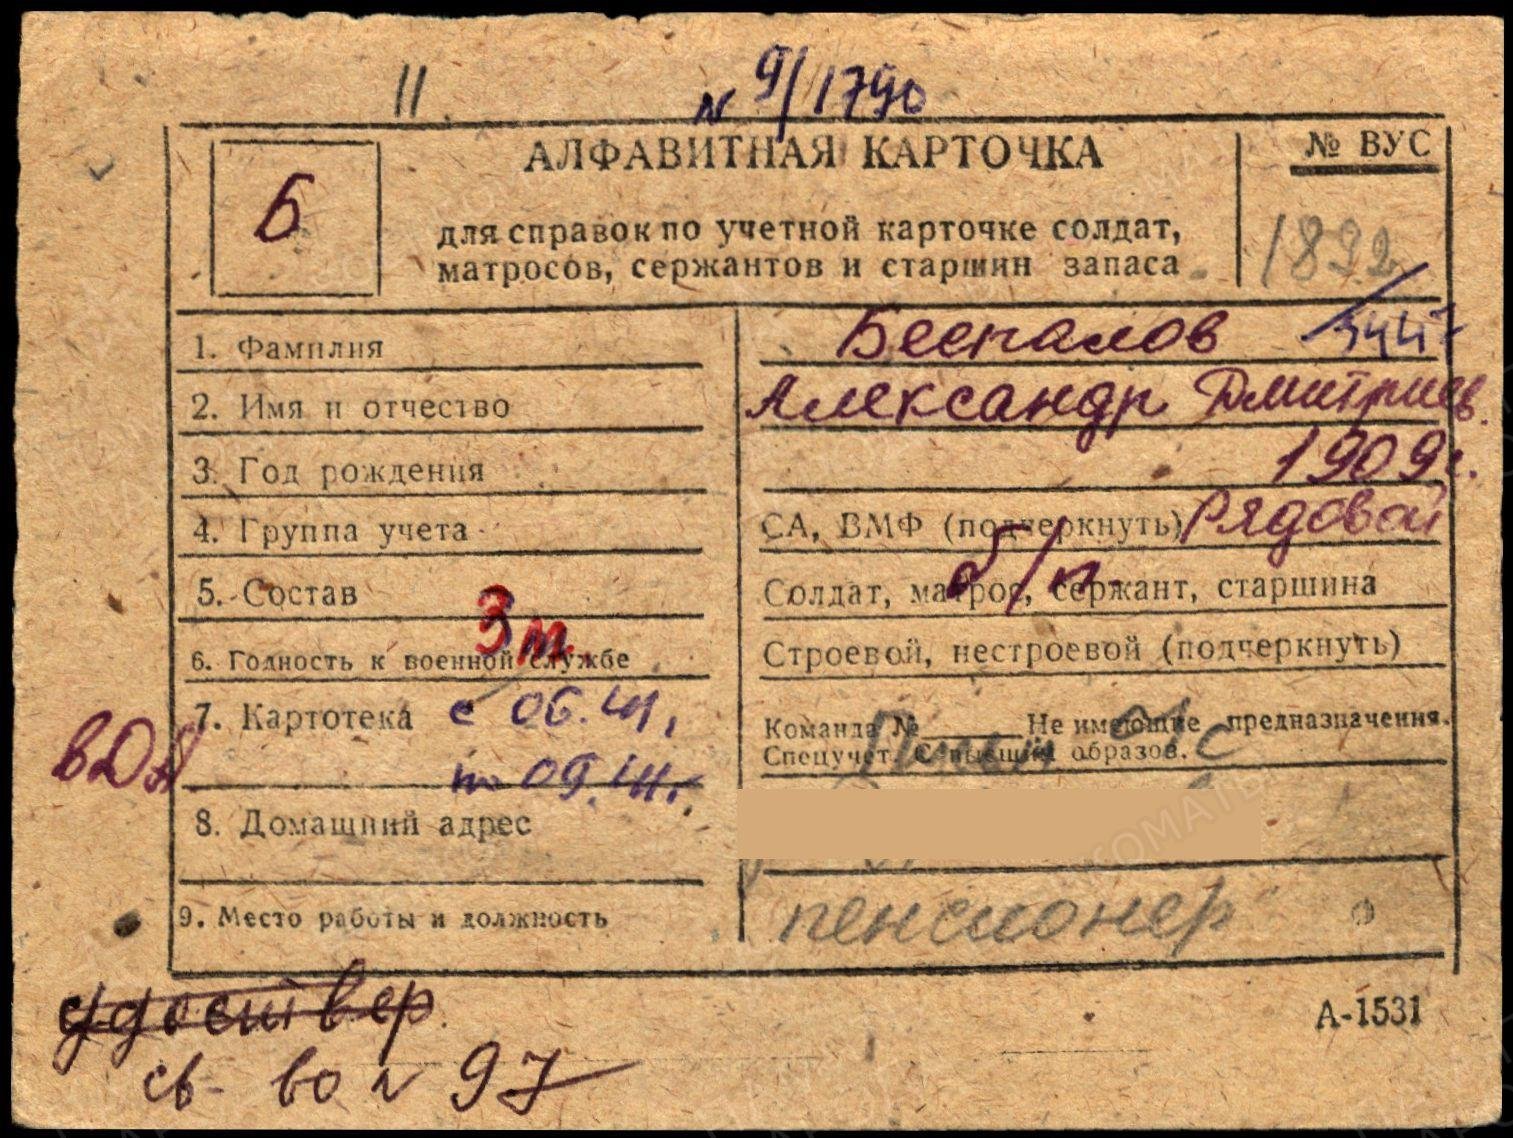 11
N 9/1790
Б
АЛФАВИТНАЯ КАРТОЧКА
для справок по учетной карточке солдат,
матросов, сержантов и старшин запаса
№ ВУС
1. Фамилия
Беспалов
2. Имя и отчество
Александр Дмитриев.
3. Год рождения
1909г.
4. Группа учета
СА, ВМФ (подчеркнуть) Рядовой
5. Состав
Солдат, матрос, сержант, старшина
б/п.
3 т.
6. Годность к военной службе
Строевой, нестроевой (подчеркнуть)
7. Картотека с 06.41.
по 09.41.
Команда № ______ Не имеющие предназначения.
Спецучет. С высшим образов.
8. Домашний адрес
9. Место работы и должность
пенсионер
удоствер.
св-во N 97
А-1531